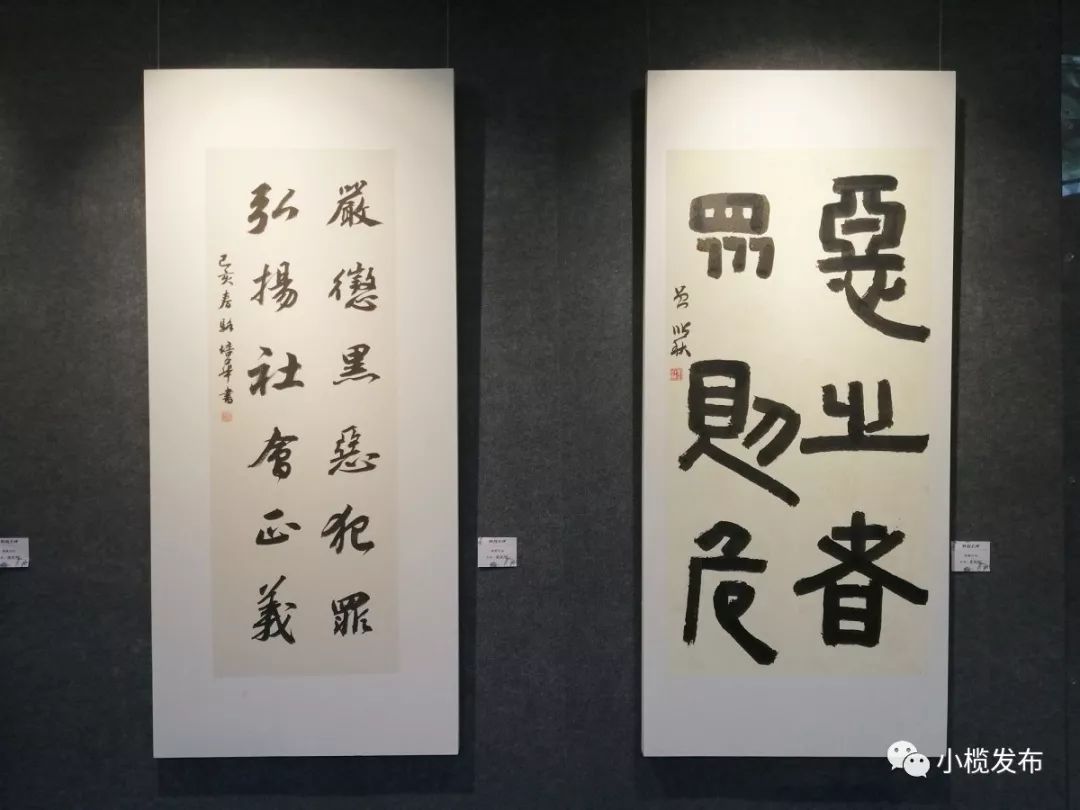 嚴懲黑惡犯罪
弘揚社會正義
己亥春駱培華書
惡之者
眾則危
小榄发布